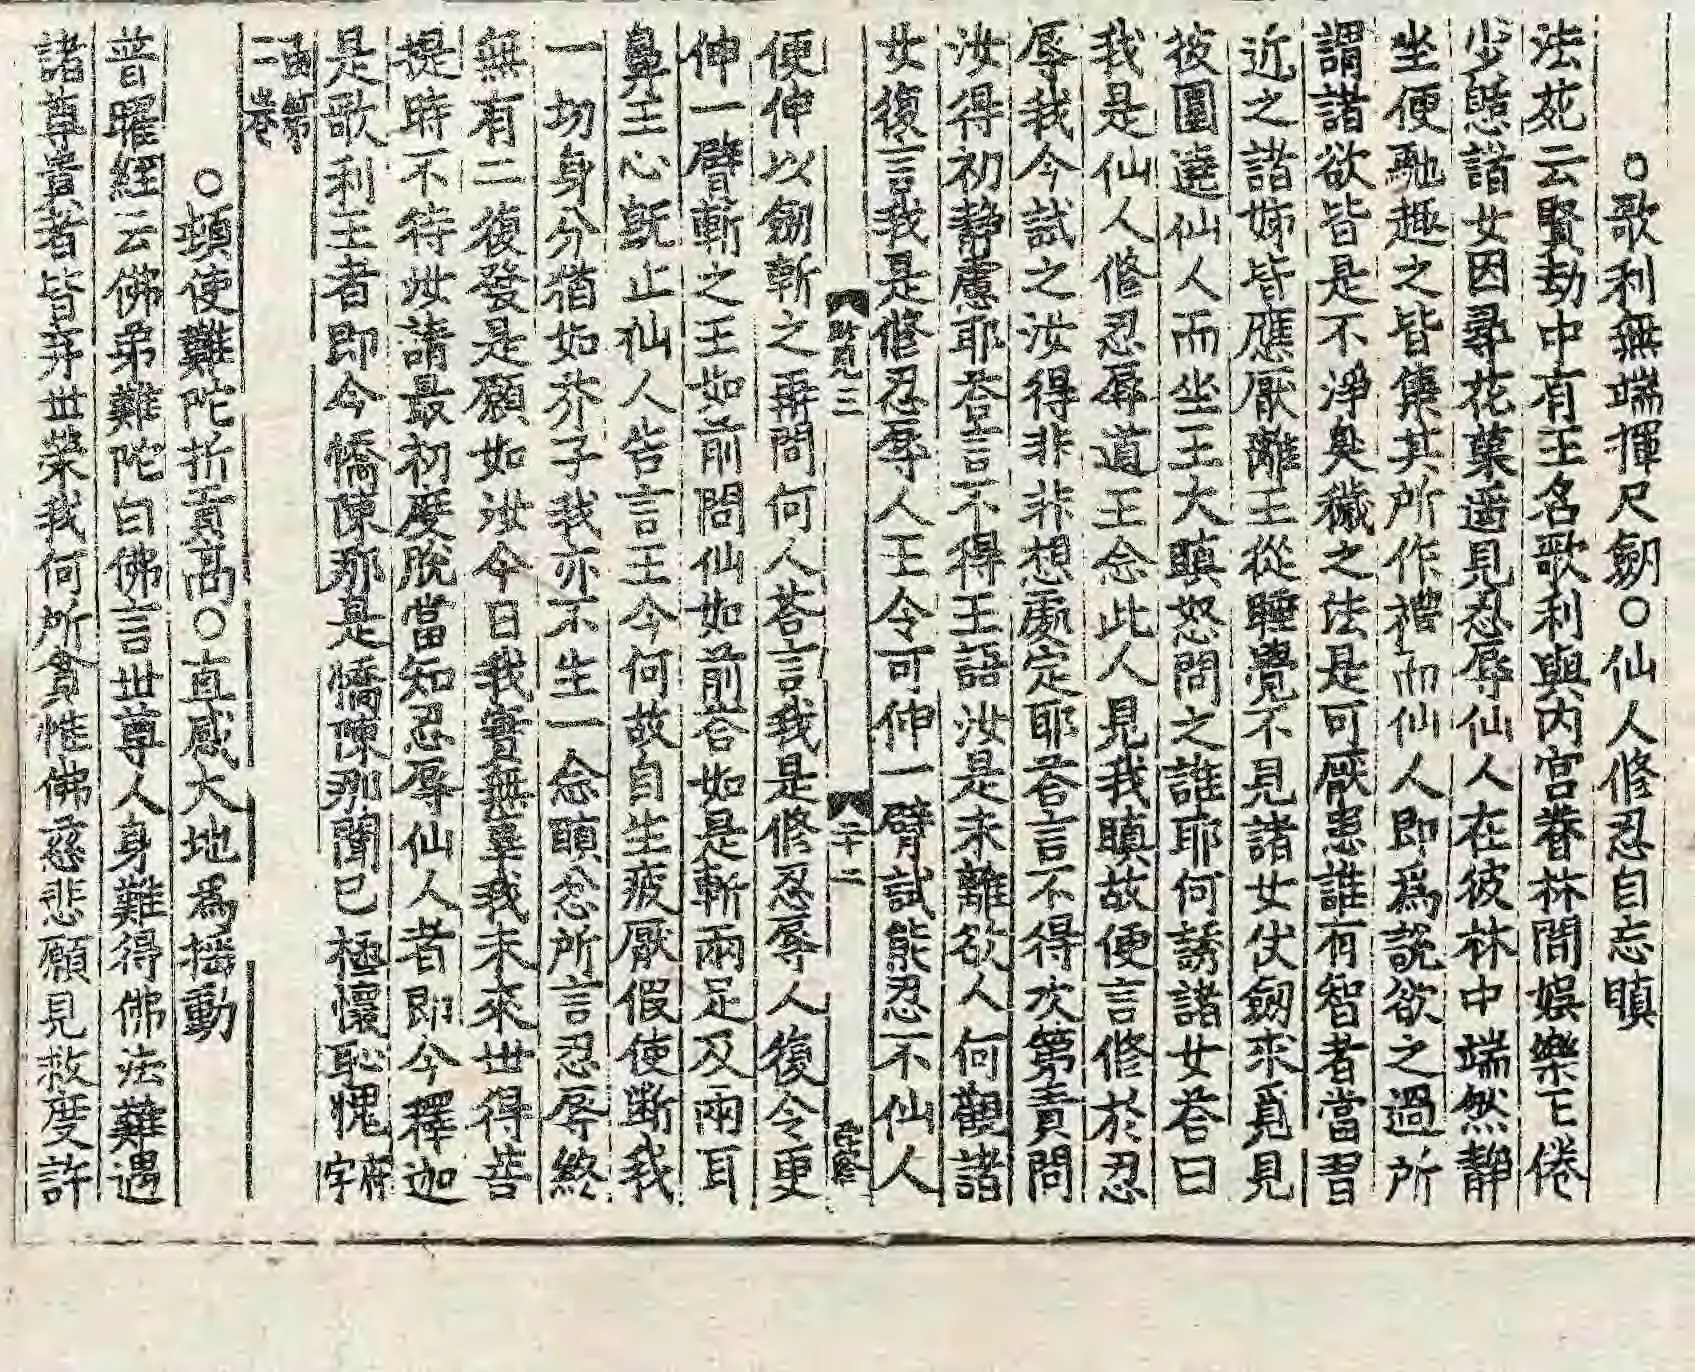 ○歌利無端揮尺劒○仙人修忍自忘瞋
法苑云賢劫中有王名歌利與内宮眷林間娛樂王倦
少憇諸女因尋花菓遥見忍辱仙人在彼林中端然靜
坐便馳趣之皆集其所作禮而仙人即爲說欲之過所
謂諸欲皆是不淨臭穢之法是可厭患誰有智者當習
近之諸姊皆應厭離王從睡覺不見諸女仗劒來覓見
彼圍遶仙人而坐王大瞋怒問之誰耶何誘諸女荅曰
我是仙人修忍辱道王念此人見我瞋故便言修於忍
辱我今試之汝得非非想處定耶荅言不得次第責問
汝得初静慮耶荅言不得王語汝是未離欲人何觀諸
女復言我是修忍辱人王令可伸一臂試能忍不仙人
便伸以劒斬之再問何人荅言我是修忍辱人復令更
伸一臂斬之王如前問仙如前荅如是斬兩足及兩耳
鼻王心旣止仙人告言王今何故自生疲厭假使斷我
一切身分猶如芥子我亦不生一念瞋忿所言忍辱終
無有二復發是願如汝今日我實無辜我未來世得菩
提時不待汝請最初度脫當知忍辱仙人者即今釋迦
是歌利王者即今憍陳那是憍陳那聞已極懷恥愧
○頓使難陀折貢高○直感大地爲揺動
普曜經云佛弟難陀白佛言世尊人身難得佛法難遇
諸尊貴者皆弃世榮我何所貪惟佛慈悲願見救度許